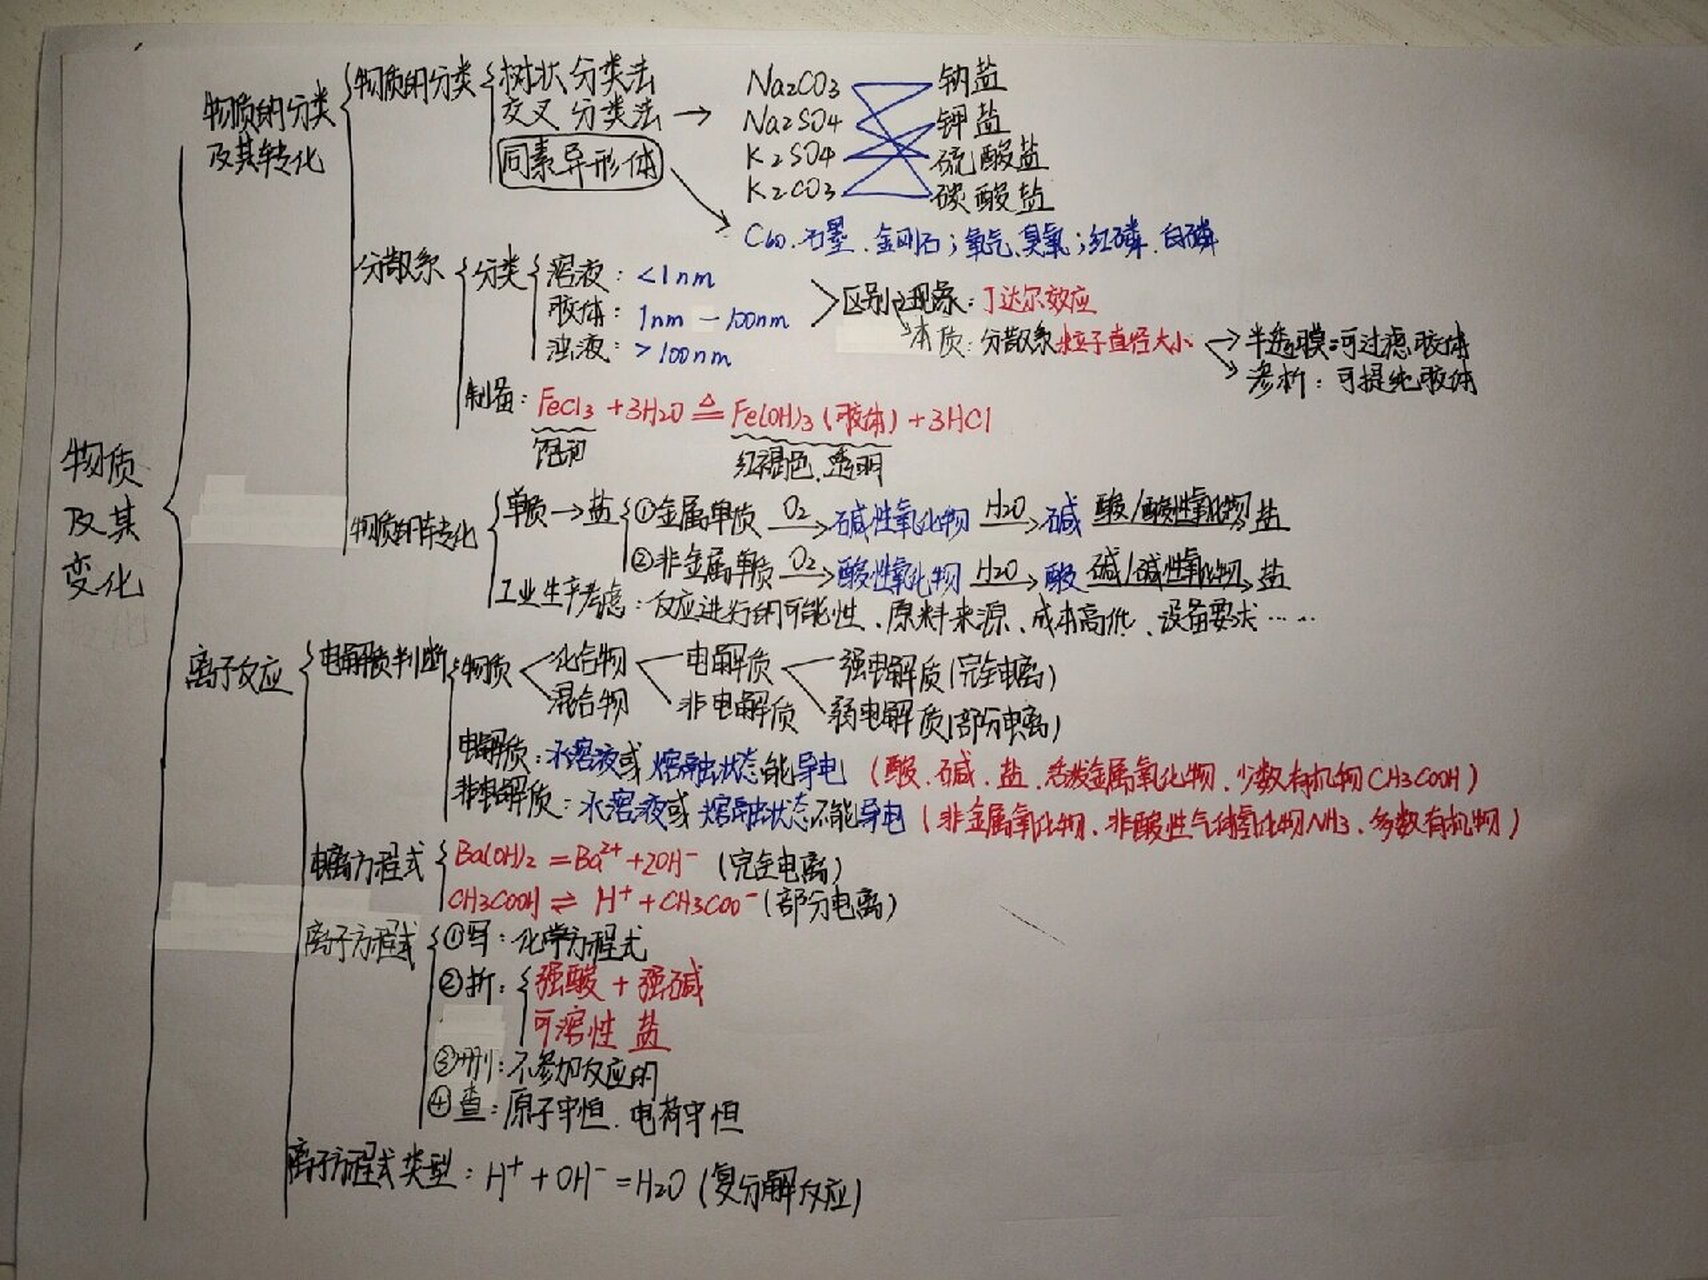 物质的分类 树状分类法 Na2CO3 钠盐
物质的分类 交叉分类法 → Na2SO4 钾盐
及其转化 同素异形体 K2SO4 硫酸盐
K2CO3 碳酸盐
C60、石墨、金刚石；氧气、臭氧；红磷、白磷
分散系 分类 溶液：<1nm
胶体：1nm—100nm 区别 现象：丁达尔效应
浊液：>100nm 本质：分散系粒子直径大小 半透膜：可过滤胶体
渗析：可提纯胶体
制备：FeCl3+3H2O △= Fe(OH)3(胶体)+3HCl
饱和 红褐色、透明
物质及其变化
物质的转化 单质→盐 ①金属单质 O2→ 碱性氧化物 H2O→ 碱 酸/酸性氧化物→ 盐
②非金属单质 O2→ 酸性氧化物 H2O→ 酸 碱/碱性氧化物→ 盐
工业生产考虑：反应进行的可能性、原料来源、成本高低、设备要求……
离子反应 电解质判断 物质 化合物 电解质 强电解质(完全电离)
混合物 非电解质 弱电解质(部分电离)
电解质：水溶液或 熔融状态能导电 (酸、碱、盐、活泼金属氧化物、少数有机物CH3COOH)
非电解质：水溶液或 熔融状态不能导电 (非金属氧化物、非酸性气体氢化物NH3、多数有机物)
电离方程式 Ba(OH)2=Ba²⁺+2OH⁻ (完全电离)
CH3COOH⇌H⁺+CH3COO⁻(部分电离)
离子方程式 ①写：化学方程式
②拆：强酸+强碱
可溶性 盐
③删：不参加反应的
④查：原子守恒、电荷守恒
离子方程式类型：H⁺+OH⁻=H2O(复分解反应)